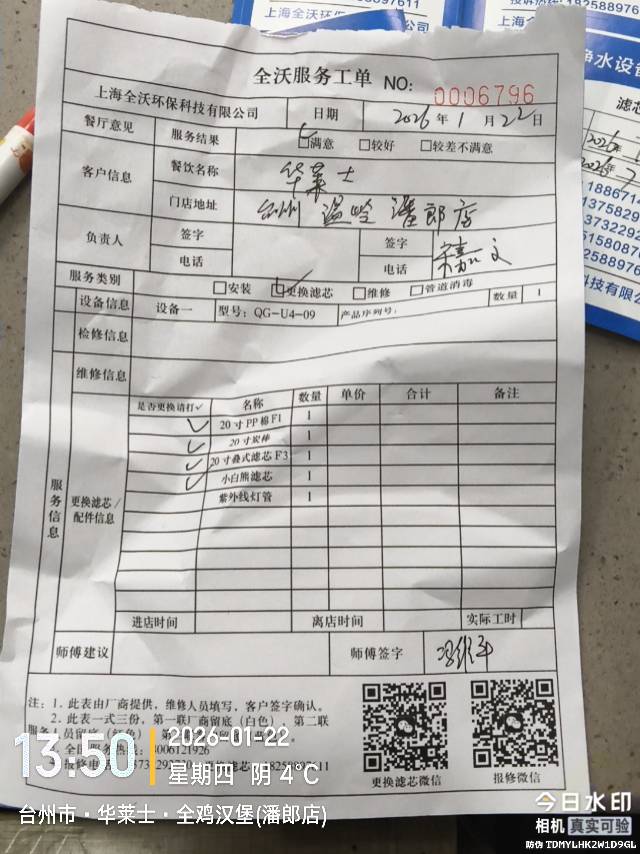 全沃服务工单 NO: 0006796
上海全沃环保科技有限公司 日期 2026年1月22日
餐厅意见 服务结果 ☑满意 □较好 □较差不满意
客户信息 餐饮名称 华莱士
门店地址 台州 温岭 潘郎店
负责人 签字 签字
电话 电话
服务类别 □安装 ☑更换滤芯 □维修 □管道消毒
设备信息 设备一 型号：QG-U4-09 产品序列号： 数量 1
检修信息
维修信息
服务信息
更换滤芯/配件信息
是否更换请打✓ 名称 数量 单价 合计 备注
✓ 20寸PP棉F1 1
✓ 20寸炭棒 1
✓ 20寸叠式滤芯F3 1
✓ 小白熊滤芯 1
紫外线灯管 1
进店时间 离店时间 实际工时
师傅建议 师傅签字
注：1. 此表由厂商提供，维修人员填写，客户签字确认。
2. 此表一式三份，第一联厂商留底（白色），第二联
更换滤芯微信 报修微信
13:50 2026-01-22
星期四 阴 4℃
台州市·华莱士·全鸡汉堡(潘郎店)
今日水印
相机 真实可验
防伪 TDMYLHK2W1D9GL
上海全沃环保
净水设备
滤芯